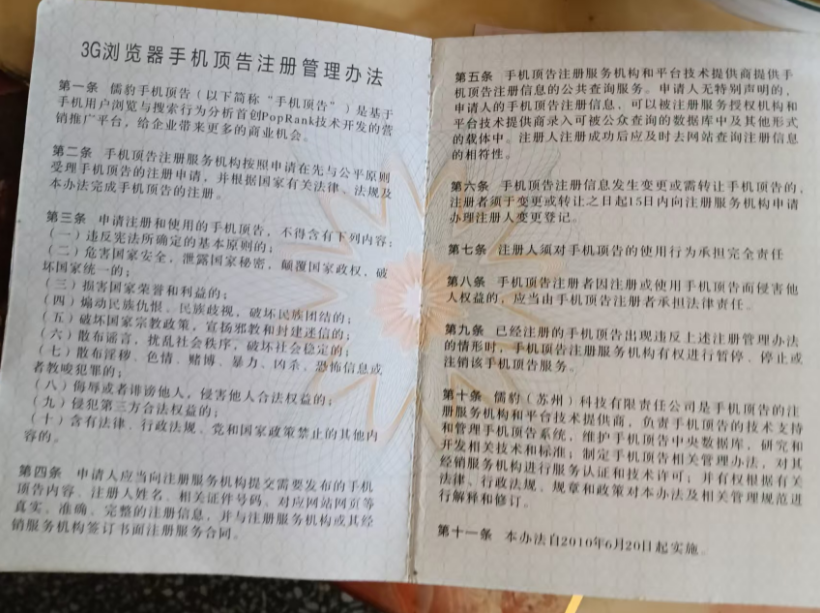 3G浏览器手机顶告注册管理办法
第一条 儒豹手机顶告（以下简称“手机顶告”）是基于
手机用户浏览与搜索行为分析首创PopRank技术开发的营
销推广平台，给企业带来更多的商业机会。
第二条 手机顶告注册服务机构按照申请在先与公平原则
受理手机顶告的注册申请，并根据国家有关法律、法规及
本办法完成手机顶告的注册。
第三条 申请注册和使用的手机顶告，不得含有下列内容：
（一）违反宪法所确定的基本原则的；
（二）危害国家安全，泄露国家秘密，颠覆国家政权，破
坏国家统一的；
（三）损害国家荣誉和利益的；
（四）煽动民族仇恨、民族歧视，破坏民族团结的；
（五）破坏国家宗教政策，宣扬邪教和封建迷信的；
（六）散布谣言，扰乱社会秩序，破坏社会稳定的；
（七）散布淫秽、色情、赌博、暴力、凶杀、恐怖信息或
者教唆犯罪的；
（八）侮辱或者诽谤他人，侵害他人合法权益的；
（九）侵犯第三方合法权益的；
（十）含有法律、行政法规、党和国家政策禁止的其他内
容的。
第四条 申请人应当向注册服务机构提交需要发布的手机
顶告内容、注册人姓名、相关证件号码、对应网站网页等
真实、准确、完整的注册信息，并与注册服务机构或其经
销服务机构签订书面注册服务合同。
第五条 手机顶告注册服务机构和平台技术提供商提供手
机顶告注册信息的公共查询服务。申请人无特别声明的，
申请人的手机顶告注册信息，可以被注册服务授权机构和
平台技术提供商录入可被公众查询的数据库中及其他形式
的载体中。注册人注册成功后应及时去网站查询注册信息
的相符性。
第六条 手机顶告注册信息发生变更或需转让手机顶告的，
注册者须于变更或转让之日起15日内向注册服务机构申请
办理注册人变更登记。
第七条 注册人须对手机顶告的使用行为承担完全责任
第八条 手机顶告注册者因注册或使用手机顶告而侵害他
人权益的，应当由手机顶告注册者承担法律责任。
第九条 已经注册的手机顶告出现违反上述注册管理办法
的情形时，手机顶告注册服务机构有权进行暂停、停止或
注销该手机顶告服务。
第十条 儒豹（苏州）科技有限责任公司是手机顶告的注
册服务机构和平台技术提供商，负责手机顶告的技术支持
和管理手机顶告系统，维护手机顶告中央数据库，研究和
开发相关技术和标准；制定手机顶告相关管理办法，对其
经销服务机构进行服务认证和技术许可；并有权根据有关
法律、行政法规、规章和政策对本办法及相关管理规范进
行解释和修订。
第十一条 本办法自2010年6月20日起实施。